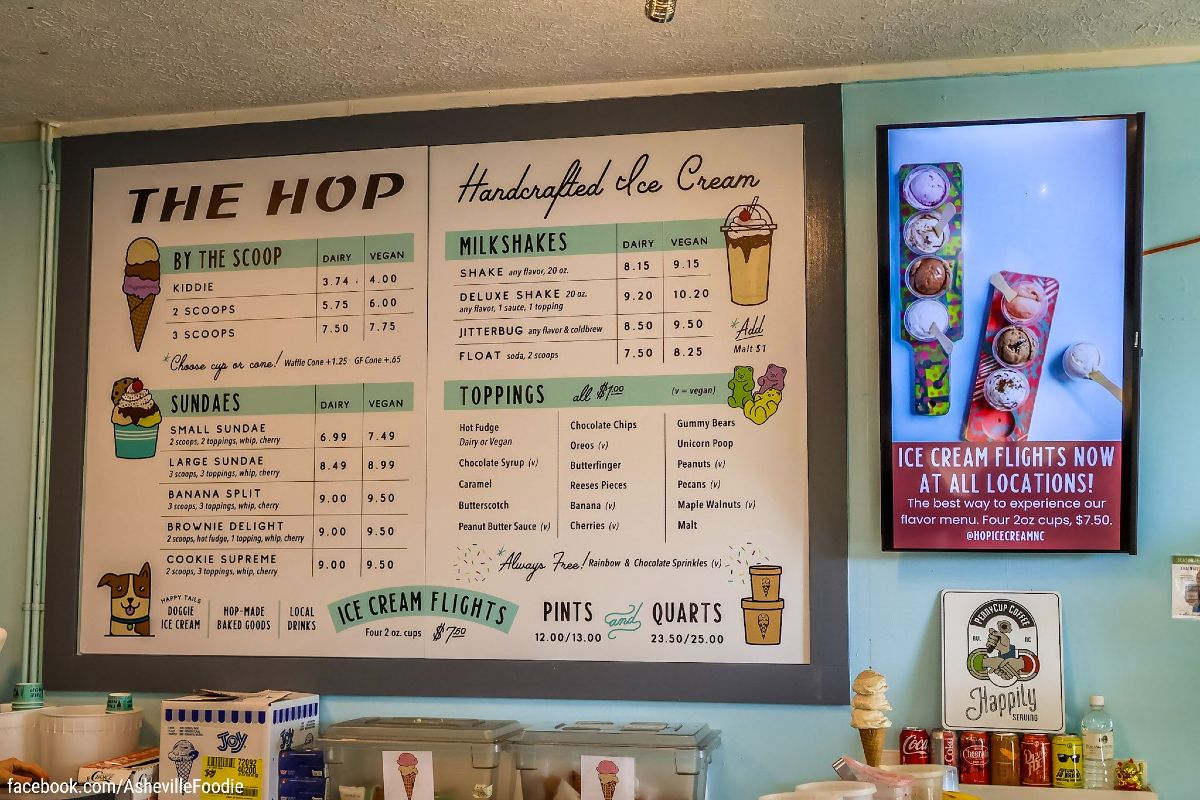 THE HOP
BY THE SCOOP DAIRY VEGAN
KIDDIE 3.74 4.00
2 SCOOPS 5.75 6.00
3 SCOOPS 7.50 7.75
*Choose cup or cone! Waffle Cone +1.25 GF Cone +.65
SUNDAES DAIRY VEGAN
SMALL SUNDAE 6.99 7.49
2 scoops, 2 toppings, whip, cherry
LARGE SUNDAE 8.49 8.99
3 scoops, 3 toppings, whip, cherry
BANANA SPLIT 9.00 9.50
3 scoops, 3 toppings, whip, cherry
BROWNIE DELIGHT 9.00 9.50
2 scoops, hot fudge, 1 topping, whip, cherry
COOKIE SUPREME 9.00 9.50
2 scoops, 3 toppings, whip, cherry
HAPPY TAILS
DOGGIE
ICE CREAM
HOP-MADE
BAKED GOODS
LOCAL
DRINKS
Handcrafted Ice Cream
MILKSHAKES DAIRY VEGAN
SHAKE any flavor, 20 oz. 8.15 9.15
DELUXE SHAKE 20 oz. 9.20 10.20
any flavor, 1 sauce, 1 topping
JITTERBUG any flavor & coldbrew 8.50 9.50
FLOAT soda, 2 scoops 7.50 8.25
*Add
Malt $1
TOPPINGS all $1.00 (v = vegan)
Hot Fudge
Dairy or Vegan
Chocolate Syrup (v)
Caramel
Butterscotch
Peanut Butter Sauce (v)
Chocolate Chips
Oreos (v)
Butterfinger
Reeses Pieces
Banana (v)
Cherries (v)
Gummy Bears
Unicorn Poop
Peanuts (v)
Pecans (v)
Maple Walnuts (v)
Malt
*Always Free! Rainbow & Chocolate Sprinkles (v)
ICE CREAM FLIGHTS
Four 2 oz. cups $7.50
PINTS and QUARTS
12.00/13.00 23.50/25.00
ICE CREAM FLIGHTS NOW
AT ALL LOCATIONS!
The best way to experience our
flavor menu. Four 2oz cups, $7.50.
@HOPICECREAMNC
PENNYCUP COFFEE
AVL NC
Happily
SERVING
JOY
72092
facebook.com/AshevilleFoodie